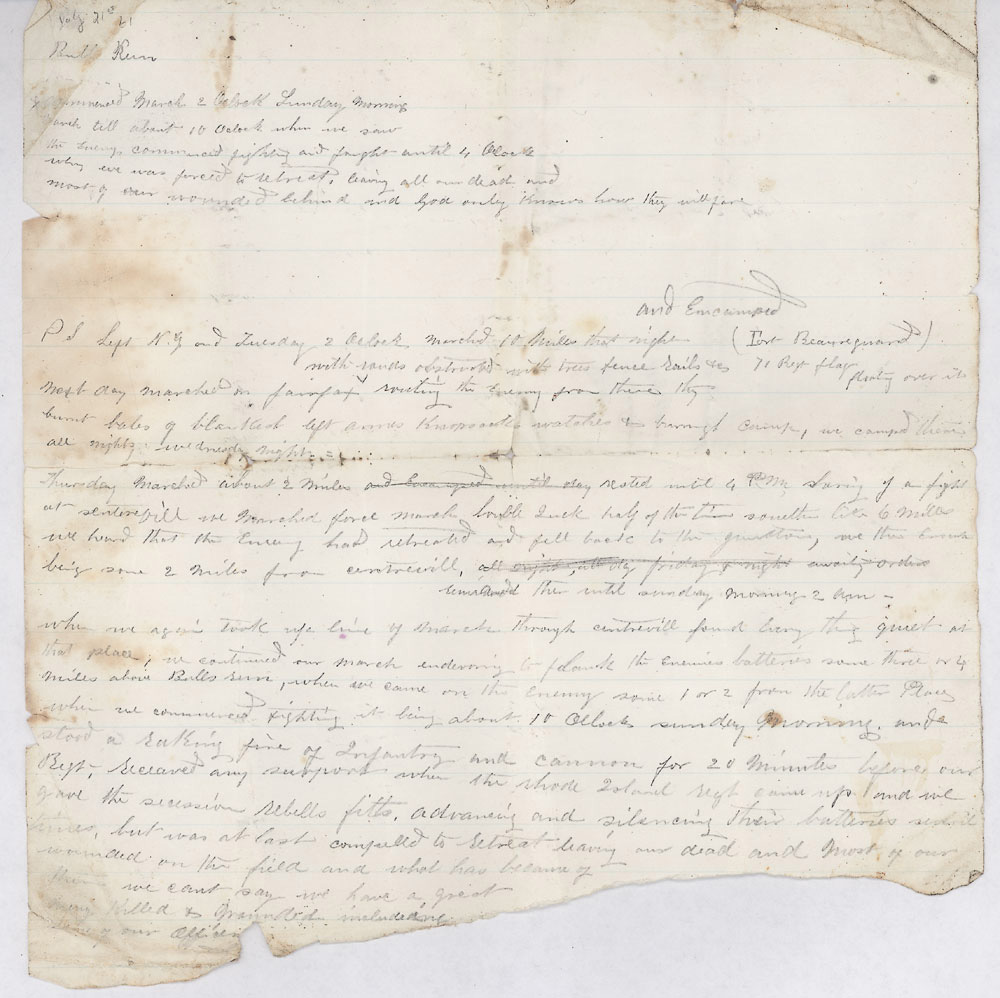 July 21st 61
Bulls Run
Commenced March 2 Oclock Sunday Morning
March till about 10 Oclock when we saw
the Enemy commenced fighting and faught until 4 Oclock
when we was forced to retreat, leaving all our dead and
most of our wounded behind and God only knows how they will fare
and Encamped
P S Left N.Y and Tuesday 2 Oclock march'd 10 Miles that night (Fort Beauregard)
with roads obstructed with trees fence rails &c 71 Regt flag floating over it
Next day marched on fairfax routing the Enemy from there they
burnt bales of blankets left armes Knapsacks watches & enough Equip, we camped there
all night wednesday night
Thursday Marched about 2 Miles and Encamped until day rested until 4 P.M. hearing of a fight
at senterevill we Marched force march double Quick half of the time something like 6 Miles
we heard that the Enemy had retreated and fell back to the, we then
being some 2 Miles from centrevill, all night, all day friday & night awaiting orders
remained there until sunday morning 2 am -
when we again took up line of march through centrevill found every thing quiet at
that place, we continued our march endevoring to flank the Enemies batteries some three or 4
miles above Bulls Run, when we came on the Enemy some 1 or 2 from the latter Place
when we commenced fighting it being about 10 Oclock sunday morning, and
stood a raking fire of Infantry and cannon for 20 Minutes before our
Regt, receaved any support when the Rhode Island regt came up and we
gave the secession rebells fitts, advancing and silencing their batteries sevrel
times, but was at last compelled to retreat leaving our dead and most of our
wounded on the field and what has became of
them we cant say we have a great
many killed & wounded includeing
some of our Officers